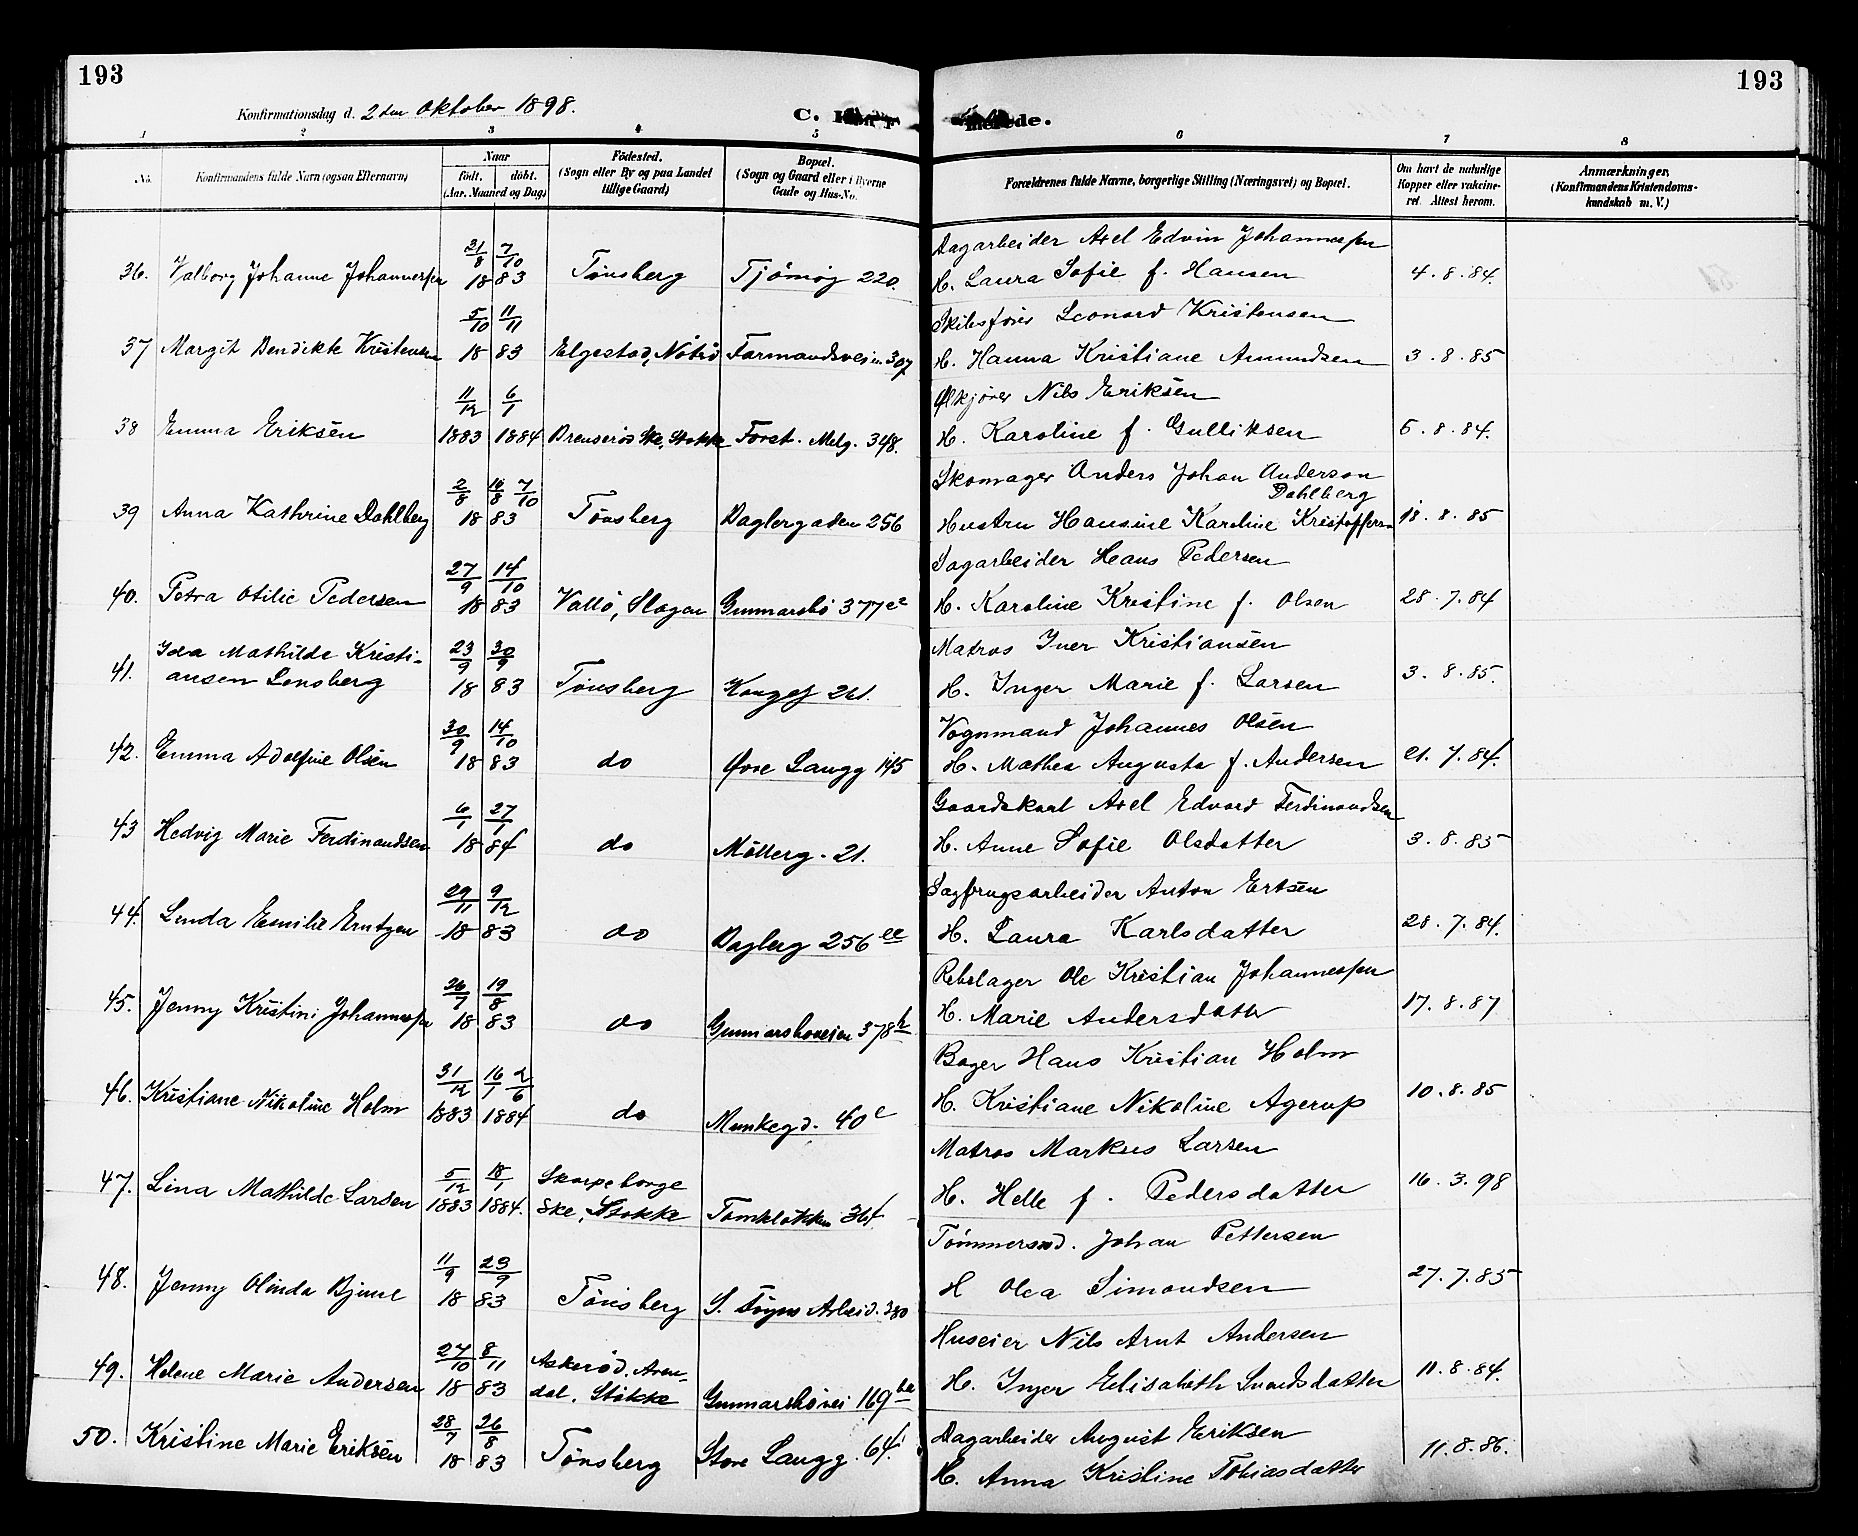 193
193
Konfirmationsdag d. 2den Oktober 1898.
C. Konf
merede.
1 2 3 4 5 6 7 8
No.
Konfirmandens fulde Navn (ogsaa Efternavn)
Naar
født. døbt.
(Aar, Maaned og Dag)
Fødested.
(Sogn eller By og paa Landet
tillige Gaard)
Bopæl.
(Sogn og Gaard eller i Byerne
Gade og Hus-No.
Forældrenes fulde Navne, borgerlige Stilling (Næringsvei) og Bopæl.
Om havt de naturlige
Kopper eller vakcine-
ret. Attest herom.
Anmærkninger,
(Konfirmandens Kristendoms-
kundskab m. V.)
21/8 7/10 Dagarbeider Axel Edvin Johannessen
36. Valborg Johanne Johannessen 18 83 Tønsberg Tjømøg 220. H. Laura Sofie f. Hansen 4.8.84.
5/10 11/11 Skibsfører Leonard Kristensen
37 Margit Bendikte Kristensen 18 83 Elgestad, Nøtrø Farmandsveien 307 H. Hanna Kristiane Amundsen 3.8.85
11/12 6/1 Ølkjører Nils Eriksen
38 Emma Eriksen 1883 1884 Brenserød Ske, Stokke Forst. Melg. 348. H. Karoline f. Gulliksen 5.8.84.
2/8 10/8 7/10 Skomager Anders Johan Anderson
Dahlberg
39 Anna Kathrine Dahlberg 18 83 Tønsberg Baglergaden 256 Hustru Hansine Karoline Kristoffersen 18.8.85
27/9 14/10 Sagarbeider Hans Pedersen
40. Petra Otilie Pedersen 18 83 Vallø, Slagen Gunnarsbø 377e2 H. Karoline Kristine f. Olsen 28.7.84
Ida Mathilde Kristi- 23/9 30/9 Matros Iver Kristiansen
41. ansen Lonsberg 18 83 Tønsberg Kongsg 261. H. Inger Marie f. Larsen 3.8.85.
30/9 14/10 Vognmand Johannes Olsen
42. Emma Adolfine Olsen 18 83 do Øvre Langg 145 H. Mathea Augusta f. Andersen 21.7.84.
6/1 27/1 Gaardskarl Axel Edvard Ferdinandsen
43 Hedvig Marie Ferdinandsen 18 84 do Møllerg. 21. H. Anne Sofie Olsdatter 3.8.85
29/11 9/12 Sagbrugsarbeider Anton Ertsen
44. Linda Emilie Erntzen 18 83 do Baglerg 256 ee H. Laura Karlsdatter 28.7.84.
26/7 19/8 Rebslager Ole Kristian Johannessen
45. Jenny Kristini Johannessen 18 83 do Gunnarsboveien 378h H. Marie Andersdatter 17.8.87
31/12 16/1 2/6 Bager Hans Kristian Holm
46. Kristiane Nikoline Holm 1883 1884 do Munkegd. 40e H. Kristiane Nikoline Agerup 10.8.85
5/12 18/1 Skarpeborge Matros Markus Larsen
47. Lina Mathilde Larsen 1883 1884. Ske, Stokke Tomkløkken 364. H. Helle f. Pedersdatter 16.3.98
11/9 23/9 Tømmersmd. Johan Pettersen
48. Jenny Olinda Bjune 18 83 Tønsberg S. Arbeid. 380 H Olea Simondsen 27.7.85
27/10 8/11 Askerød, Aren- Huseier Nils Arnt Andersen
49. Helene Marie Andersen 18 83 dal, Stokke Gunnarsbøvei 169 H. Inger Elisabeth Svendsdatter 11.8.84.
28/7 26/8 Dagarbeider August Eriksen
50. Kristine Marie Eriksen 18 83 Tønsberg Store Langg. 64. H. Anna Kristine Tobiasdatter 11.8.86.